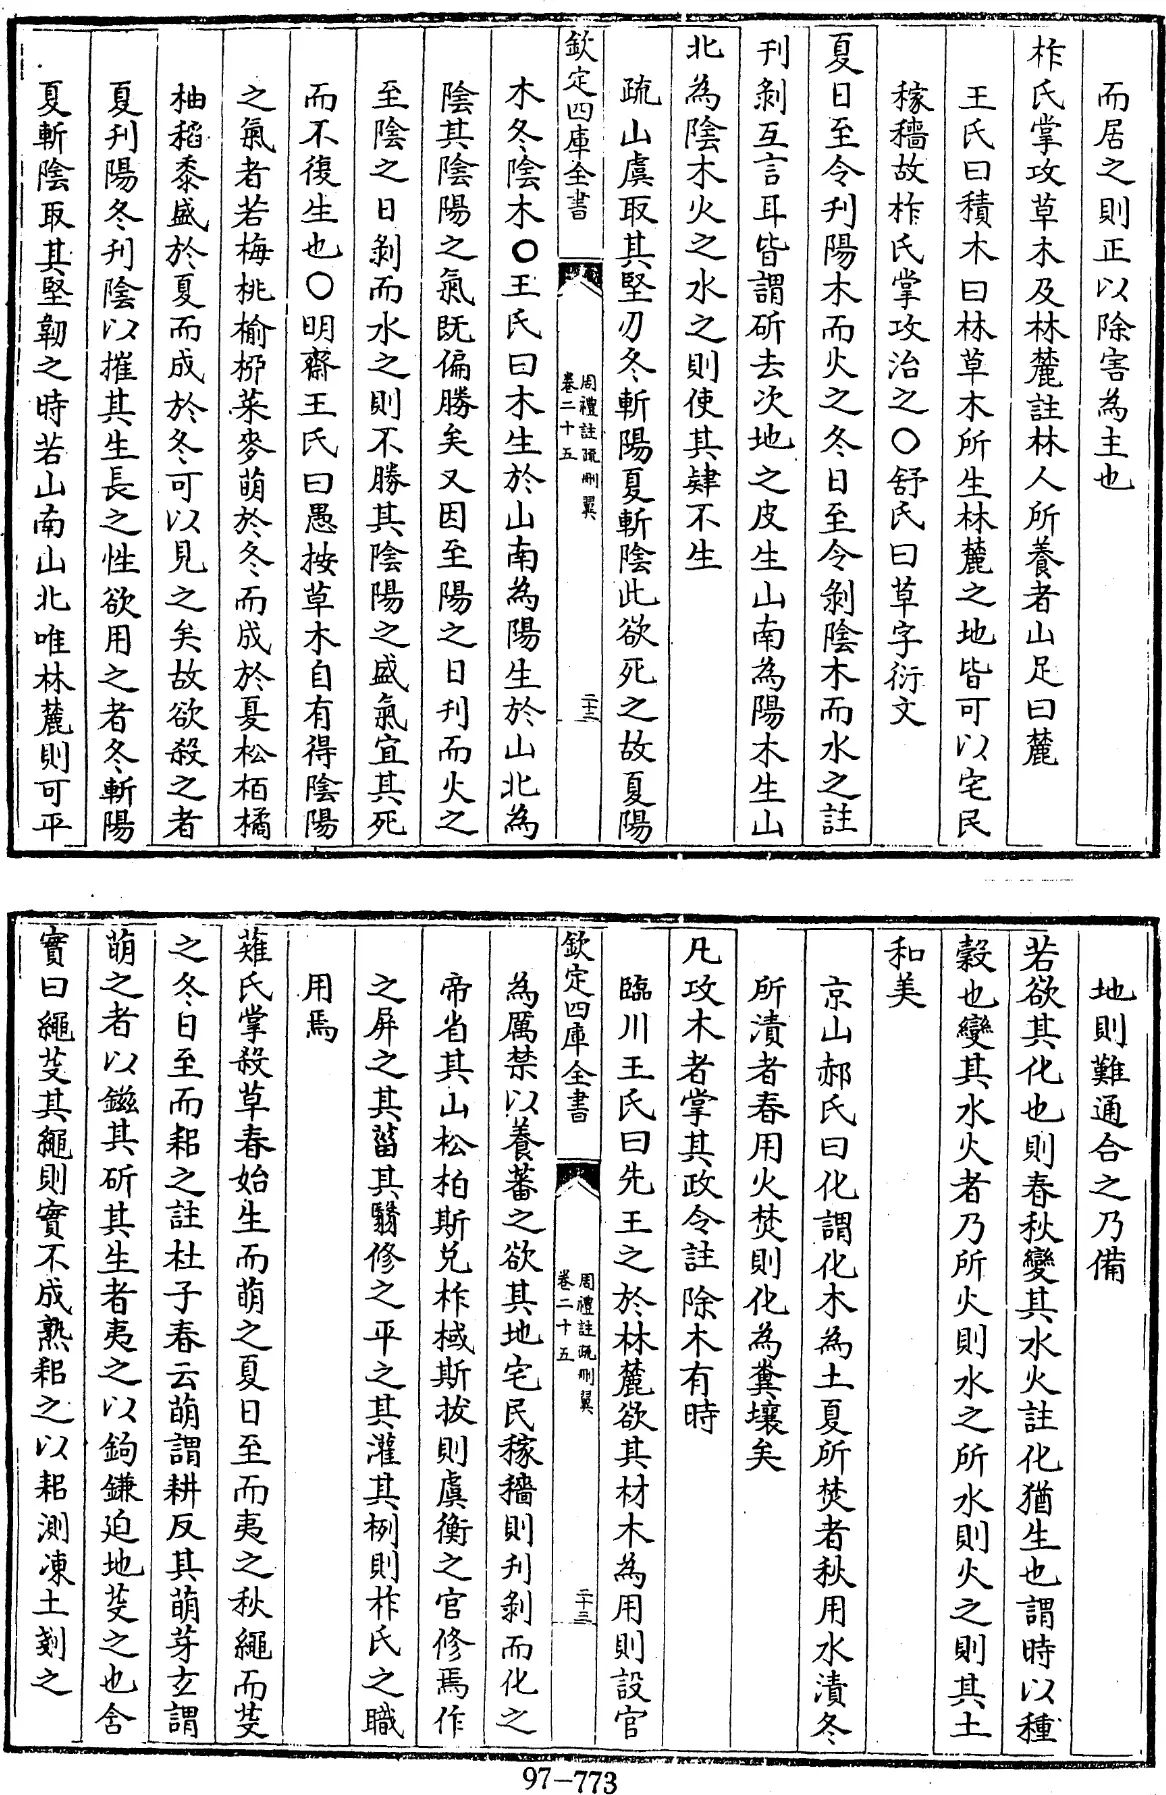 而居之則正以除害為主也
柞氏掌攻草木及林麓註林人所養者山足曰麓
王氏曰積木曰林草木所生林麓之地皆可以宅民
稼穡故柞氏掌攻治之〇舒氏曰草字衍文
夏日至令刋陽木而火之冬日至令剝陰木而水之註
刋剝互言耳皆謂斫去次地之皮生山南為陽木生山
北為陰木火之水之則使其肄不生
疏山虞取其堅刃冬斬陽夏斬陰此欲死之故夏陽
欽定四庫全書
周禮註疏刪翼
卷二十五
二十三
木冬陰木〇王氏曰木生於山南為陽生於山北為
陰其陰陽之氣既偏勝矣又因至陽之日刋而火之
至陰之日剝而水之則不勝其陰陽之盛氣宜其死
而不復生也〇明齋王氏曰愚按草木自有得陰陽
之氣者若梅桃榆栁菜麥萌於冬而成於夏松栢橘
柚稻黍盛於夏而成於冬可以見之矣故欲殺之者
夏刋陽冬刋陰以摧其生長之性欲用之者冬斬陽
夏斬陰取其堅韌之時若山南山北唯林麓則可平
地則難通合之乃備
若欲其化也則春秋變其水火註化猶生也謂時以種
穀也變其水火者乃所火則水之所水則火之則其土
和美
京山郝氏曰化謂化木為土夏所焚者秋用水漬冬
所漬者春用火焚則化為糞壤矣
凡攻木者掌其政令註除木有時
臨川王氏曰先王之於林麓欲其材木為用則設官
欽定四庫全書
周禮註疏刪翼
卷二十五
二十三
為厲禁以養蕃之欲其地宅民稼穡則刋剝而化之
帝省其山松柏斯兌柞棫斯拔則虞衡之官修焉作
之屏之其菑其翳修之平之其灌其栵則柞氏之職
用焉
薙氏掌殺草春始生而萌之夏日至而夷之秋繩而芟
之冬日至而耜之註杜子春云萌謂耕反其萌芽玄謂
萌之者以鎡其斫其生者夷之以鉤鎌迫地芟之也含
實曰繩芟其繩則實不成熟耜之以耜測凍土剗之
97-773